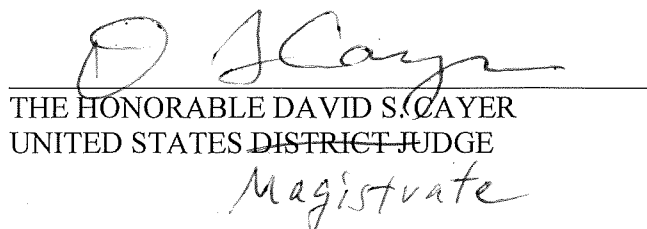 D S Cayer
THE HONORABLE DAVID S. CAYER
UNITED STATES DISTRICT JUDGE
Magistrate